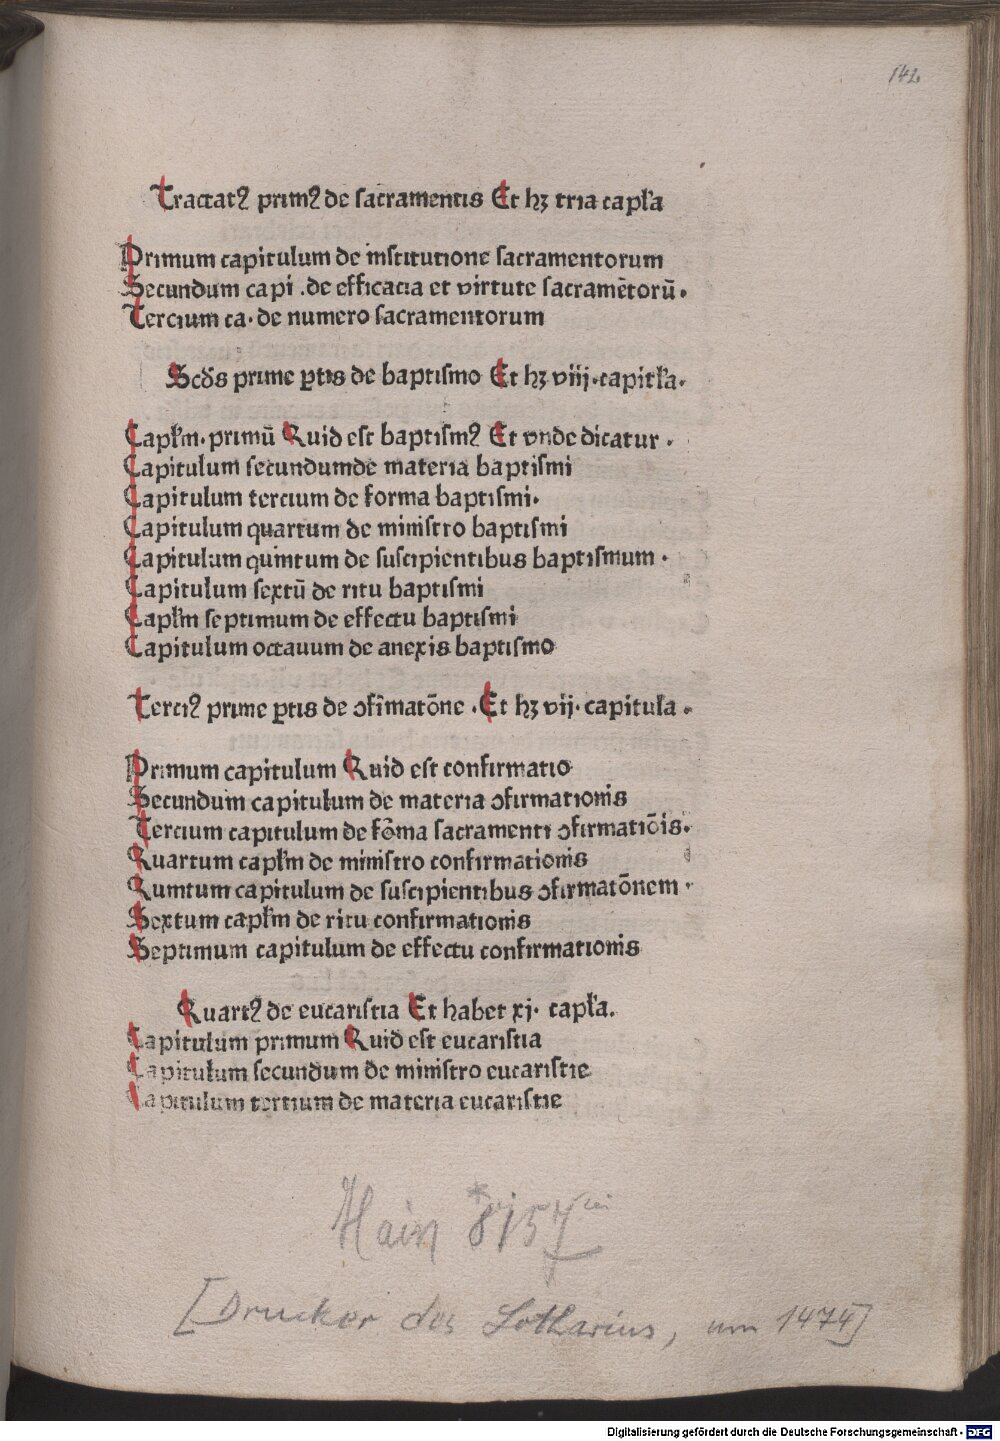 142
Tractatꝰ primꝰ de sacramentis Et hꝫ tria capła
Primum capitulum de institutione sacramentorum
Secundum capi .de efficacia et virtute sacramētorū.
Tercium ca. de numero sacramentorum
Scd̄s prime ꝑtis de baptismo Et hꝫ viij.capitła.
Capłm. primū Quid est baptismꝰ Et vnde dicatur .
Capitulum secundumde materia baptismi
Capitulum tercium de forma baptismi.
Capitulum quartum de ministro baptismi
Capitulum quintum de suscipientibus baptismum .
Capitulum sextū de ritu baptismi
Capłm septimum de effectu baptismi
Capitulum octauum de anexis baptismo
Terciꝰ prime ꝑtis de ꝯfīmatōne .Et hꝫ vij. capituła .
Primum capitulum Quid est confirmatio
Secundum capitulum de materia ꝯfirmationis
Tercium capitulum de fōma sacramenti ꝯfirmatiōis.
Quartum capłm de ministro confirmationis
Quintum capitulum de suscipientibus ꝯfirmatōnem .
Sextum capłm de ritu confirmationis
Septimum capitulum de effectu confirmationis
Quartꝰ de eucaristia Et habet xj. capła.
Capitulum primum Quid est eucaristia
Capitulum secundum de ministro eucaristie
Capitulum tertium de materia eucaristie
Hain *8157
[Drucker des Lotharius, um 1474]
Digitalisierung gefördert durch die Deutsche Forschungsgemeinschaft - DFG